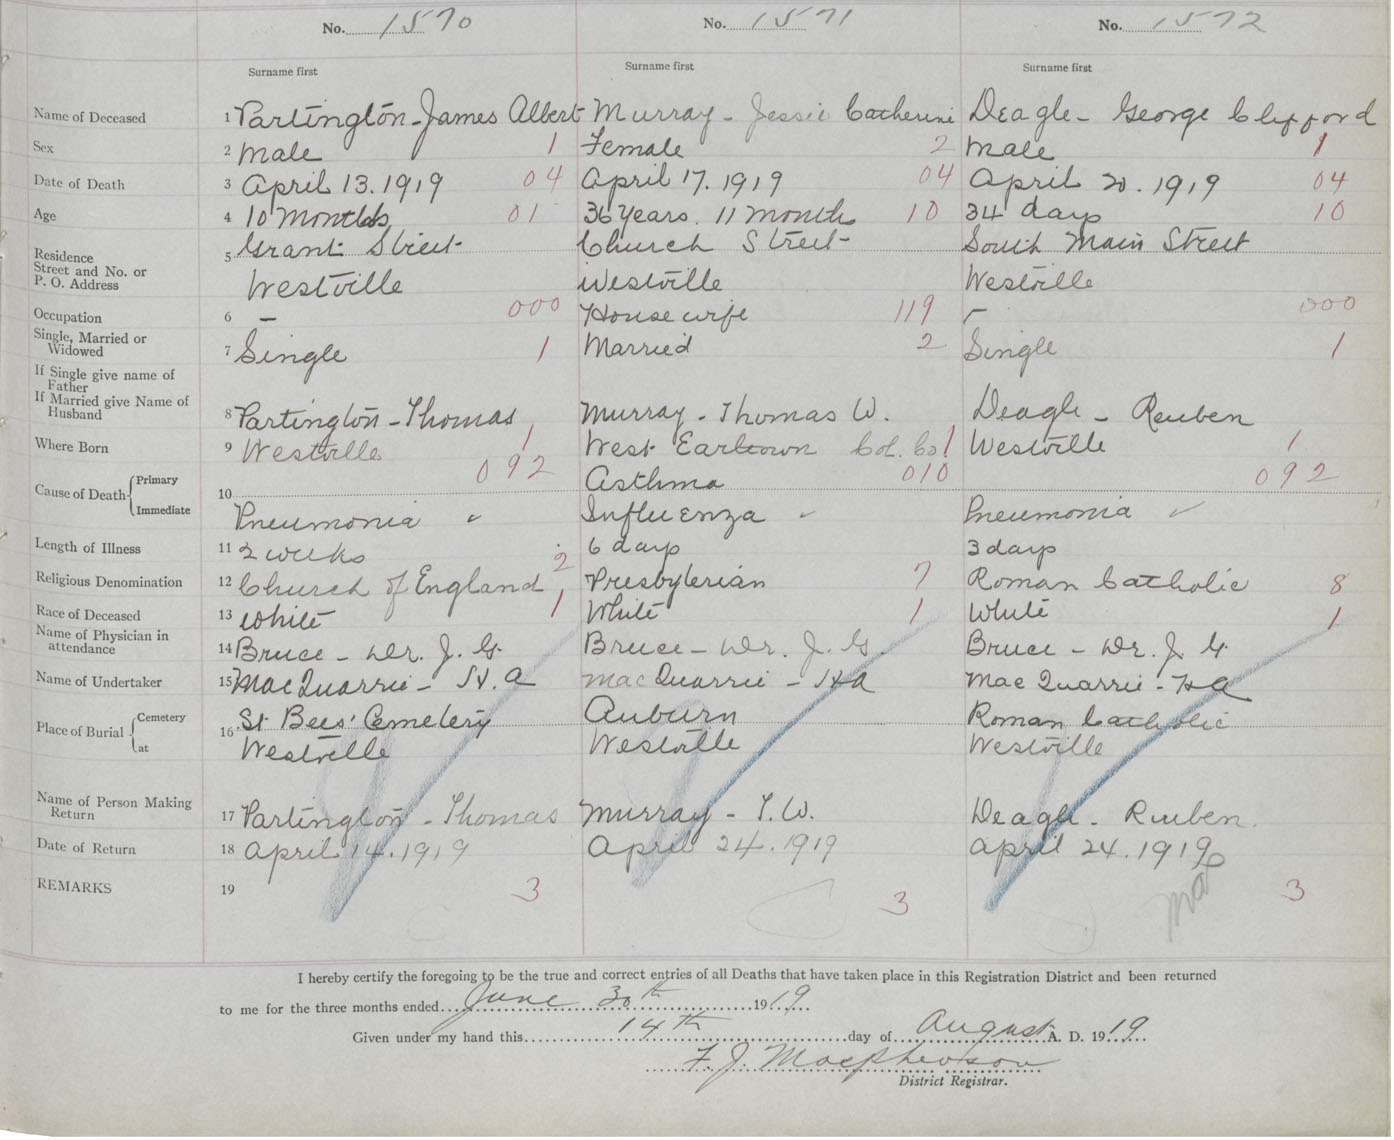 No. 1570 No. 1571 No. 1572
Surname first Surname first Surname first
Name of Deceased 1 Partington - James Albert Murray - Jessie Catherine Deagle - George Clifford
Sex 2 Male 1 Female 2 Male 1
Date of Death 3 April 13. 1919 04 April 17. 1919 04 April 20. 1919 04
Age 4 10 Months 01 36 Years. 11 Months 10 34 days 10
Residence 5 Grant Street Church Street South Main Street
Street and No. or
P. O. Address Westville Westville Westville
Occupation 6 — 000 Housewife 119 – 000
Single, Married or
Widowed 7 Single 1 Married 2 Single 1
If Single give name of
Father
If Married give Name of
Husband 8 Partington - Thomas Murray - Thomas W. Deagle - Reuben
Where Born 9 Westville 1 West Earltown Col. Co. 1 Westville 1
092 010 092
Cause of Death { Primary 10 Asthma
Immediate Pneumonia ✓ Influenza ✓ Pneumonia ✓
Length of Illness 11 2 weeks 6 days 3 days
Religious Denomination 12 Church of England 2 Presbyterian 7 Roman Catholic 8
Race of Deceased 13 White 1 White 1 White 1
Name of Physician in
attendance 14 Bruce - Dr. J. G. Bruce - Dr. J. G. Bruce - Dr. J. G.
Name of Undertaker 15 MacQuarrie - H. A MacQuarrie - H A MacQuarrie - H A
Place of Burial { Cemetery 16 St Bees' Cemetery Auburn Roman Catholic
at Westville Westville Westville
Name of Person Making
Return 17 Partington - Thomas Murray - T. W. Deagle - Reuben
Date of Return 18 April 14. 1919 April 24. 1919 April 24. 1919
REMARKS 19 3 3 3
I hereby certify the foregoing to be the true and correct entries of all Deaths that have taken place in this Registration District and been returned
to me for the three months ended June 30th 1919
Given under my hand this 14th day of August A. D. 1919
F. J. Macpherson
District Registrar.